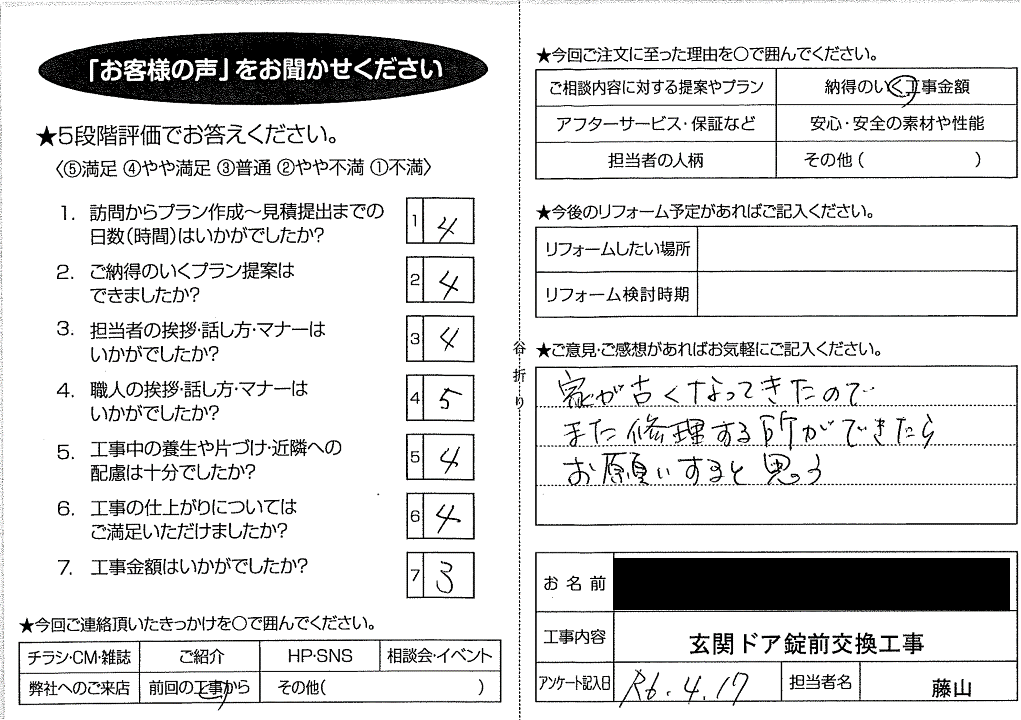 「お客様の声」をお聞かせください
★5段階評価でお答えください。
〈⑤満足 ④やや満足 ③普通 ②やや不満 ①不満〉
1. 訪問からプラン作成～見積提出までの
日数(時間)はいかがでしたか?
1 4
2. ご納得のいくプラン提案は
できましたか?
2 4
3. 担当者の挨拶・話し方・マナーは
いかがでしたか?
3 4
4. 職人の挨拶・話し方・マナーは
いかがでしたか?
4 5
5. 工事中の養生や片づけ・近隣への
配慮は十分でしたか?
5 4
6. 工事の仕上がりについては
ご満足いただけましたか?
6 4
7. 工事金額はいかがでしたか?
7 3
★今回ご連絡頂いたきっかけを○で囲んでください。
チラシ・CM・雑誌 ご紹介 HP・SNS 相談会・イベント
弊社へのご来店 前回の工事から その他( )
谷折り
★今回ご注文に至った理由を○で囲んでください。
ご相談内容に対する提案やプラン 納得のいく工事金額
アフターサービス・保証など 安心・安全の素材や性能
担当者の人柄 その他( )
★今後のリフォーム予定があればご記入ください。
リフォームしたい場所
リフォーム検討時期
★ご意見・ご感想があればお気軽にご記入ください。
家が古くなってきたので
また修理する所ができたら
お願いすると思う
お名前
工事内容 玄関ドア錠前交換工事
アンケート記入日 R6.4.17 担当者名 藤山